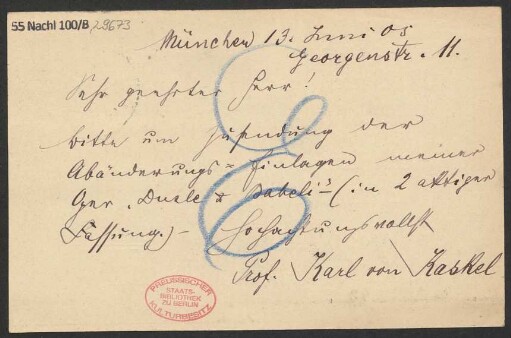 55 Nachl 100/B
29673
München 13. Juni 05
Georgenstr. 11.
Sehr geehrter Herr!
bitte um Zusendung der
Abänderungs=Einlagen meiner
Oper „Duse & Babeli" (in 2 aktiger
Fassung.) – Hochachtungsvollst
Prof. Karl von Kaskel
PREUSSISCHER
STAATS-
BIBLIOTHEK
ZU BERLIN
KULTURBESITZ